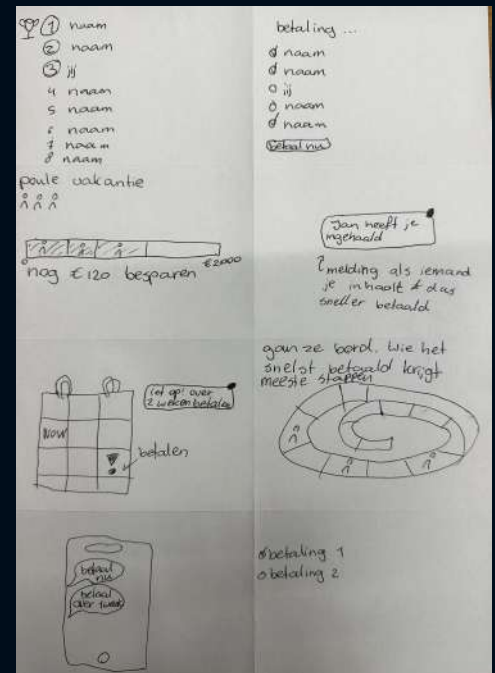 1 naam
2 naam
3 jij
4 naam
5 naam
6 naam
7 naam
8 naam
betaling ...
naam
naam
jij
naam
naam
betaal nu
poule vakantie
€2000
nog €120 besparen
Jan heeft je
ingehaald
melding als iemand
je inhaalt & dus
sneller betaald
Let op! over
2 weken betalen
NOW
betalen
ganze bord. Wie het
snelst betaald krijgt
meeste stappen
betaal
nu
betaal
over 1 week
betaling 1
betaling 2